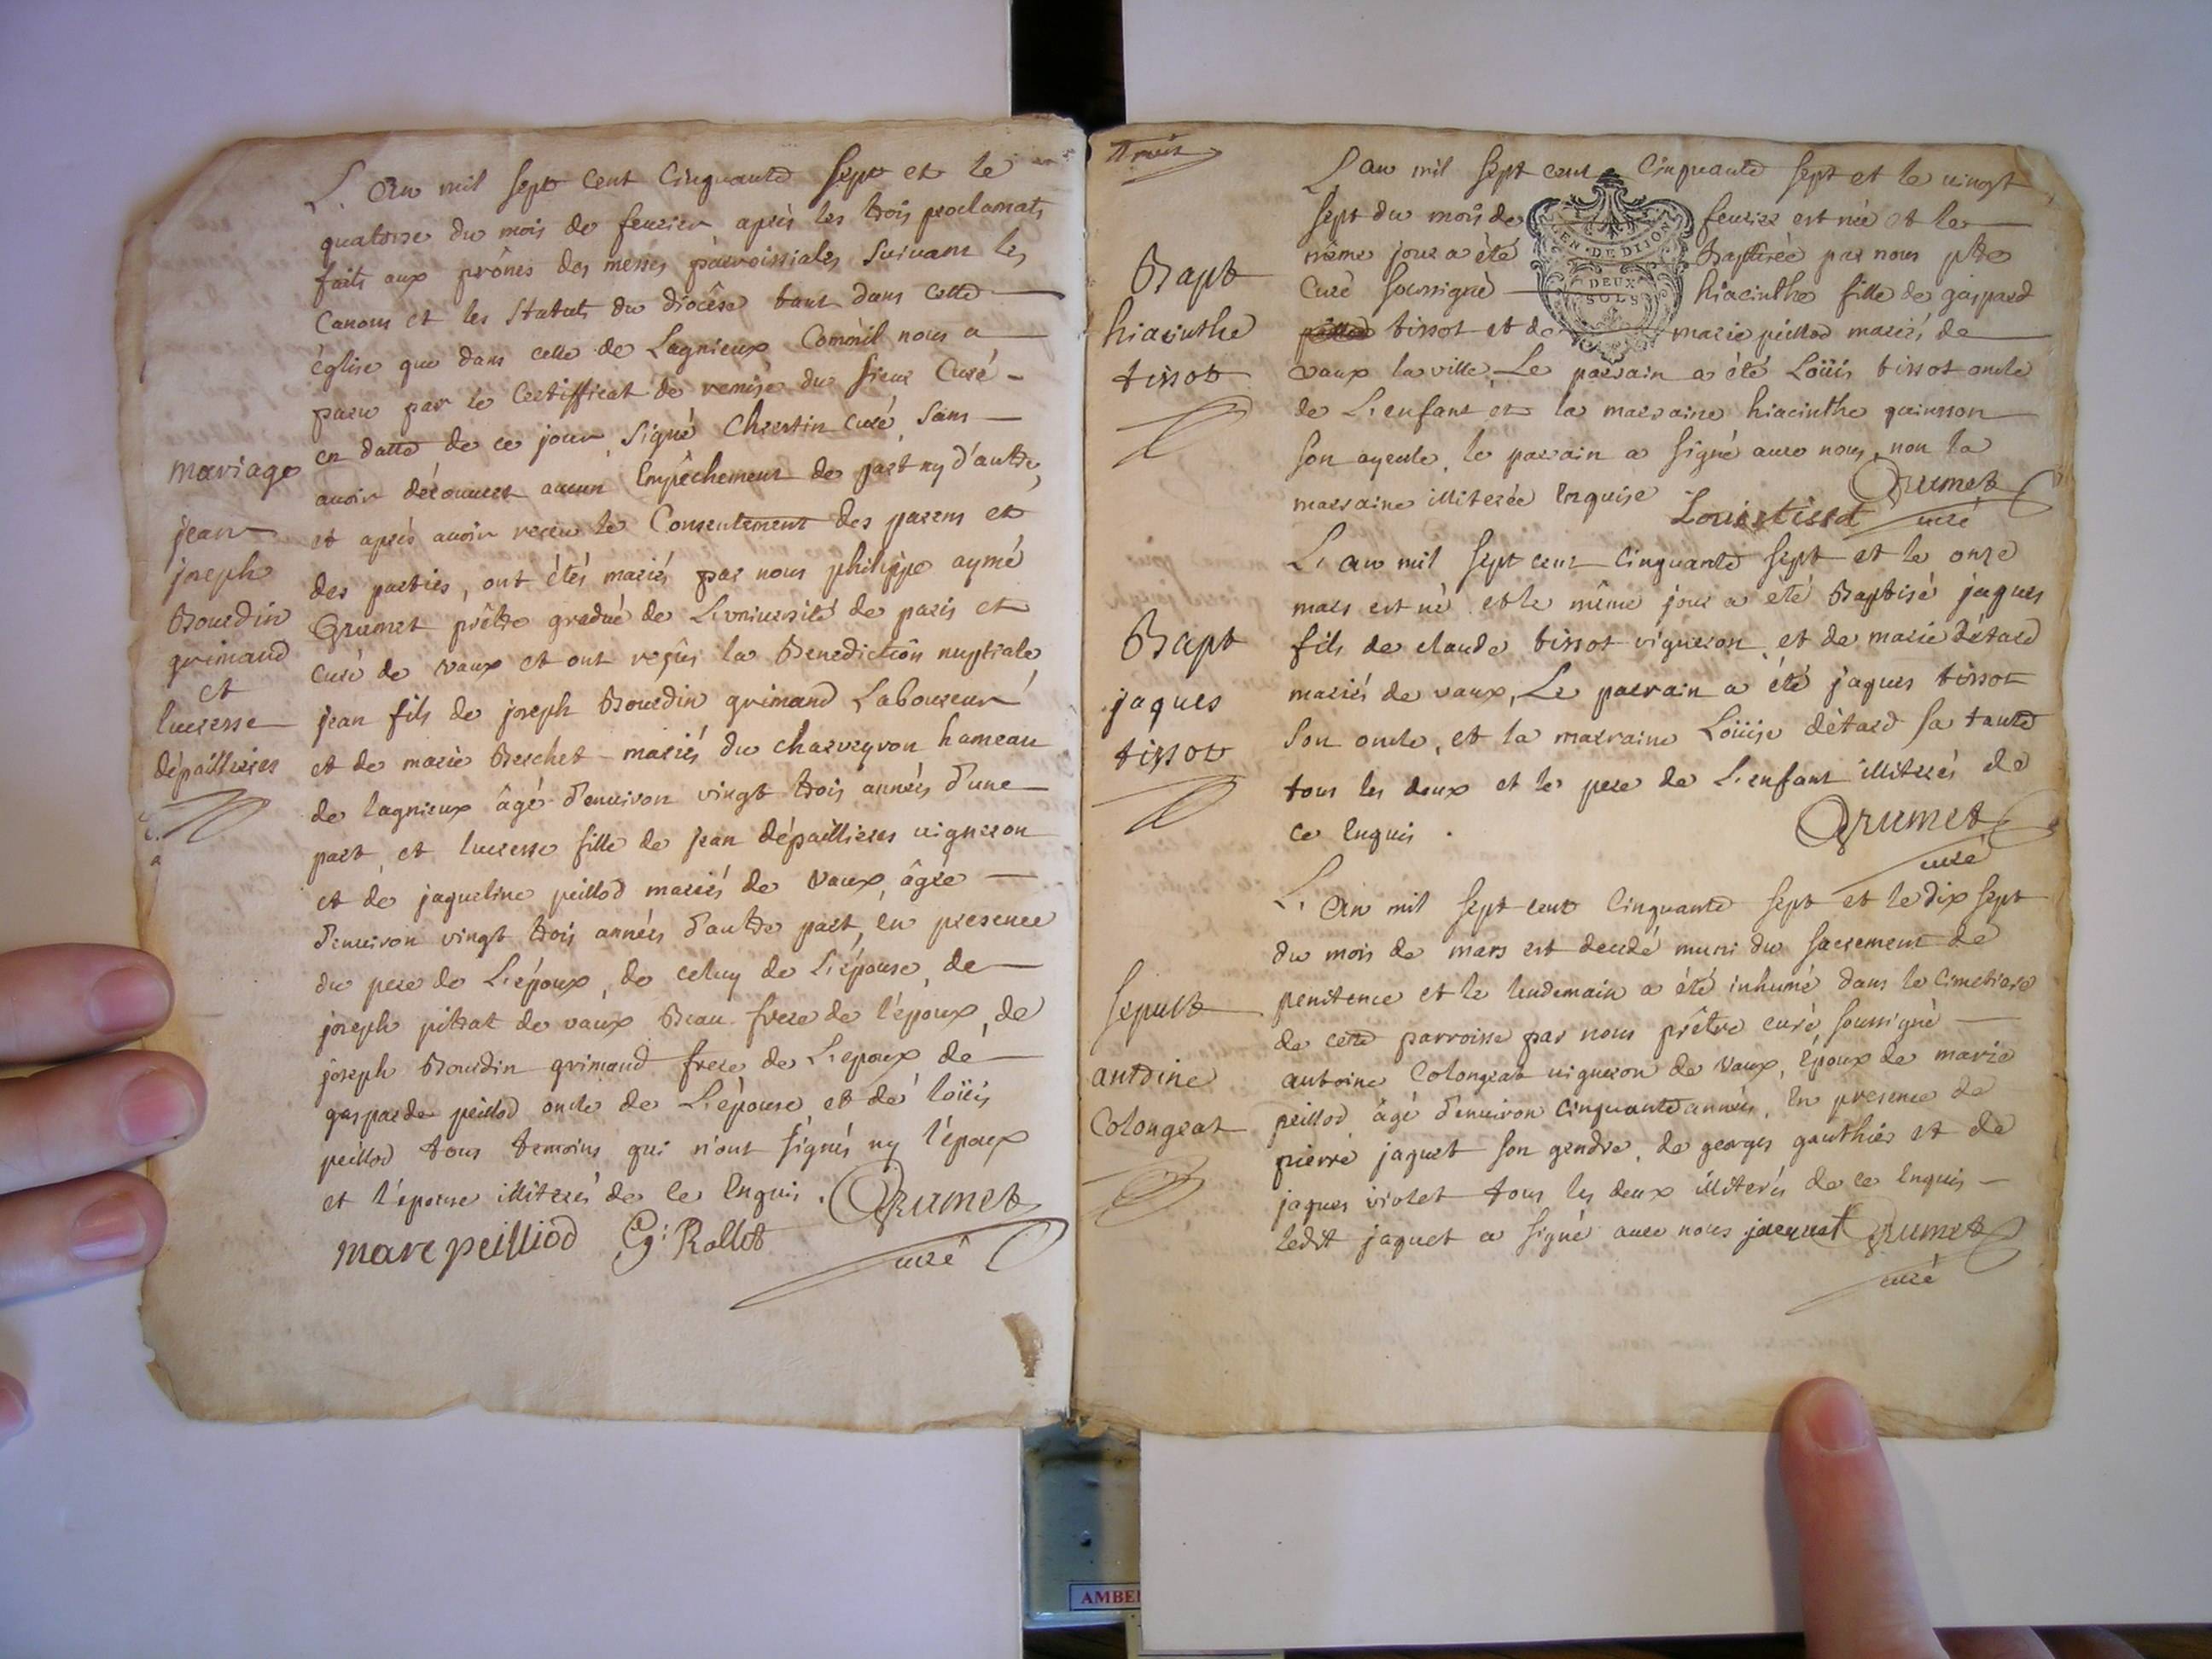 L'an mil sept cent cinquante sept et le
quatorze du mois de feurier après les trois proclamats
faits aux prônes des messes parroissiales suivant les
canons et les statuts du diocèse tant dans cette
église que dans celle de Lagnieux comm'il nous a
paru par le certifficat de remise du sieur curé
en datte de ce jour signé Chrestin curé, sans
avoir découvert aucun empêchement de part ny d'autre,
et après avoir receu le consentement des parens et
des parties, ont étés mariés par nous philippe aymé
Grumet prêtre gradué de L'université de paris et
curé de vaux et ont reçus la Benediction nuptiale
jean fils de joseph Bourdin grimaud Laboureur
et de marie Berchet mariés du charveyron hameau
de lagnieux âgé d'environ vingt trois années d'une
part, et lucresse fille de jean dépaillieres vigneron
et de jaqueline peillod mariés de vaux, âgée
d'environ vingt trois années d'autre part, en presence
du pere de L'époux, de celuy de L'épouse, de
joseph pittrat de vaux Beau frere de l'époux, de
joseph Bourdin grimaud frere de L'epoux de
gasparde peillod oncle de L'épouse, et de loüis
peillod tous temoins qui n'ont signés ny l'époux
et l'épouse illiterés de ce enquis. Grumet
marc peilliod G: Rollet curé
mariage
jean
joseph
Bourdin
grimaud
et
lucresse
dépaillieres
L'an mil sept cent cinquante sept et le vingt
sept du mois de feurier est née et le
même jour a été Baptisée par nous ptre
curé soussigné hiacinthe fille de gaspard
tissot et de marie peillod mariés de
vaux la ville, Le parrain a été Loüis tissot oncle
de L'enfant et la marraine hiacinthe quinson
son ayeule, le parrain a signé avec nous, non la
marraine illiterée enquise Louis tissot Grumet
curé
EN DE DIJON
DEUX
SOLS
Bapt
hiacinthe
tissot
L'an mil sept cent cinquante sept et le onze
mars est né et le même jour a été Baptisé jaques
fils de claude tissot vigneron et de marie détard
mariés de vaux, Le parrain a été jaques tissot
son oncle, et la marraine Loüise détard sa tante
tous les deux et le pere de L'enfant illiterés de
ce enquis. Grumet
curé
Bapt
jaques
tissot
L'an mil sept cent cinquante sept et le dix sept
du mois de mars est decedé muni du sacrement de
penitence et le lendemain a été inhumé dans le cimetiere
de cette parroisse par nous prêtre curé soussigné
antoine Colongeat vigneron de vaux, époux de marie
peillod âgé d'environ cinquante années, en presence de
pierre jaquet son gendre, de georges gauthier et de
jaques violet tous les deux illiterés de ce enquis
ledit jaquet a signé avec nous jacquet Grumet
curé
sepult
antoine
Colongeat
AMBE